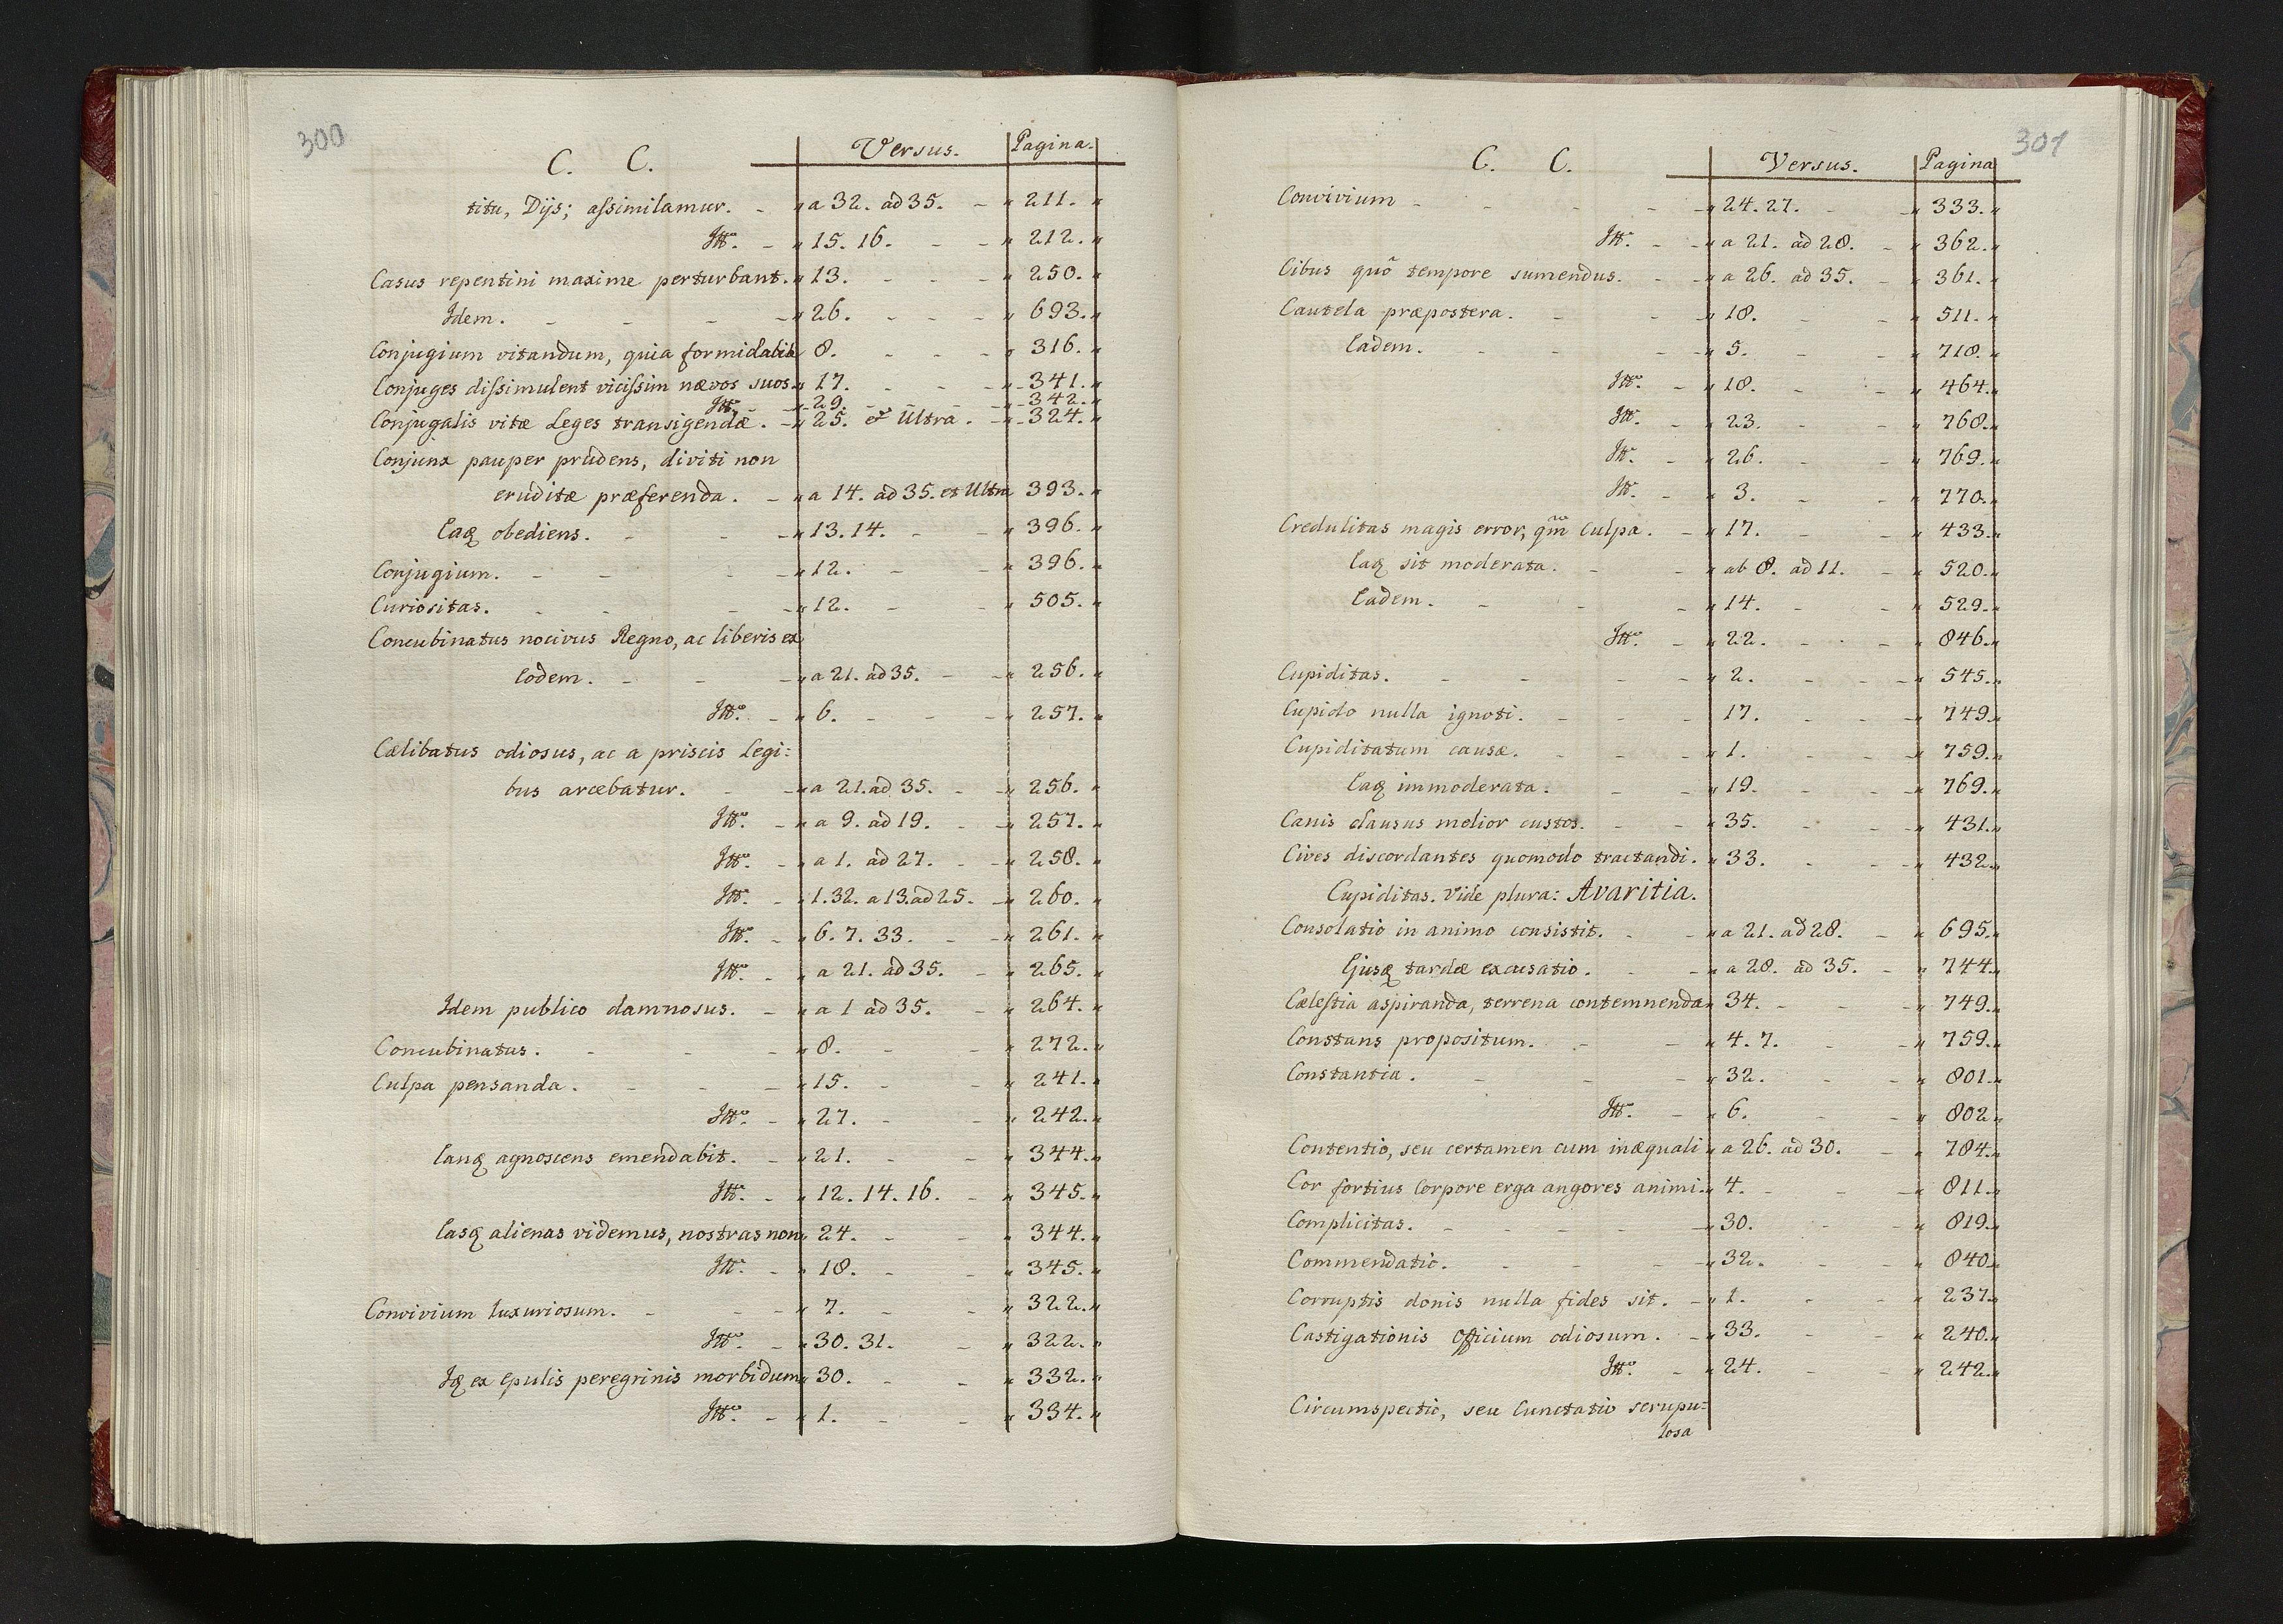 300
C. C. Versus. Pagina.
titu, Dijs; assimilamur. - " a 32. ad 35. - " 211. "
Itt. - " 15. 16. - - " 212. "
Casus repentini maxime perturbant. " 13. - - - " 250. "
Idem. - - - - " 26. - - - " 693. "
Conjugium vitandum, quia formidabile 8. - - - " 316. "
Conjuges dissimulent vicissim nævos suos " 17. - - - " 341. "
Itt. - " 29. - - - " 342. "
Conjugalis vitæ Leges transigendæ. - " 25. et Ultra. - " 324. "
Conjunx pauper prudens, diviti non
eruditæ præferenda. - " a 14. ad 35. et Ultra 393. "
Eaq obediens. - - - " 13. 14. - - " 396. "
Conjugium. - - - - " 12. - - " 396. "
Curiositas. - - - - " 12. - - " 505. "
Concubinatus nocivus Regno, ac liberis ex
Eodem. - - - " a 21. ad 35. - - " 256. "
Itto. - " 6. - - - " 257. "
Cælibatus odiosus, ac a priscis Legi:
bus arcebatur. - - " a 21. ad 35. - - " 256. "
Itto. - " a 9. ad 19. - - " 257. "
Itto. - " a 1. ad 27. - - " 258. "
Itto. - " 1. 32. a 13. ad 25. - " 260. "
Itto. - " 6. 7. 33. - - " 261. "
Itto. - " a 21. ad 35. - " 265. "
Idem publico damnosus. - " a 1 ad 35. - " 264. "
Concubinatus. - - - " 8. - - " 272. "
Culpa pensanda. - - - " 15. - - " 241. "
Itto. - " 27. - - " 242. "
Eanq agnoscens emendabit. - " 21. - - " 344. "
Itto. - " 12. 14. 16. - " 345. "
Easq alienas videmus, nostras non " 24. - - " 344. "
Itt. - " 18. - - " 345. "
Convivium luxuriosum. - - - " 7. - - " 322. "
Itto. - " 30. 31. - " 322. "
Iq ex Epulis peregrinis morbidum " 30. - - " 332. "
Itto. - " 1. - - " 334. "
301
C. C. Versus. Pagina
Convivium - - - - - " 24. 27. - - " 333. "
Itt. - - " a 21. ad 28. - " 362. "
Cibus quô tempore sumendus. - - " a 26. ad 35. - " 361. "
Cautela præpostera. - - - " 18. - - " 511. "
Eadem. - - - - " 5. - - " 718. "
Itto. - " 18. - - " 464. "
Itt. - " 23. - - " 768. "
Itt. - " 26. - - " 769. "
Itt. - " 3. - - " 770. "
Credulitas magis error, qm Culpa. - " 17. - - " 433. "
Eaq sit moderata. - - " ab 8. ad 11. - " 520. "
Eadem. - - - " 14. - - " 529. "
Itto. - " 22. - - " 846. "
Cupiditas. - - - - " 2. - - - " 545. "
Cupido nulla ignoti. - - - 17. - - - " 749. "
Cupiditatum causæ. - - - " 1. - - - " 759. "
Eaq immoderata. - - " 19. - - - " 769. "
Canis clausus melior custos. - - " 35. - - " 431. "
Cives discordantes quomodo tractandi. " 33. - - - " 432. "
Cupiditas. Vide plura: Avaritia.
Consolatio in animo consistit. - - " a 21. ad 28. - " 695. "
Ejusq tardæ excusatio. - - " a 28. ad 35. - " 744. "
Cælestia aspiranda, terrena contemnenda " 34. - - - " 749. "
Constans propositum. - - " 4. 7. - - " 759. "
Constantia. - - - " 32. - - " 801. "
Itto. - " 6. - - " 802. "
Contentio, seu certamen cum inæquali " a 26. ad 30. - " 784. "
Cor fortius Corpore erga angores animi. " 4. - - - " 811. "
Complicitas. - - - - - " 30. - - " 819. "
Commendatio. - - - - " 32. - - " 840. "
Corruptis donis nulla fides sit. - " 1. - - " 237. "
Castigationis Officium odiosum. - " 33. - - " 240. "
Itto. - " 24. - - " 242. "
Circumspectio, seu Cunctatio scrupu=
losa